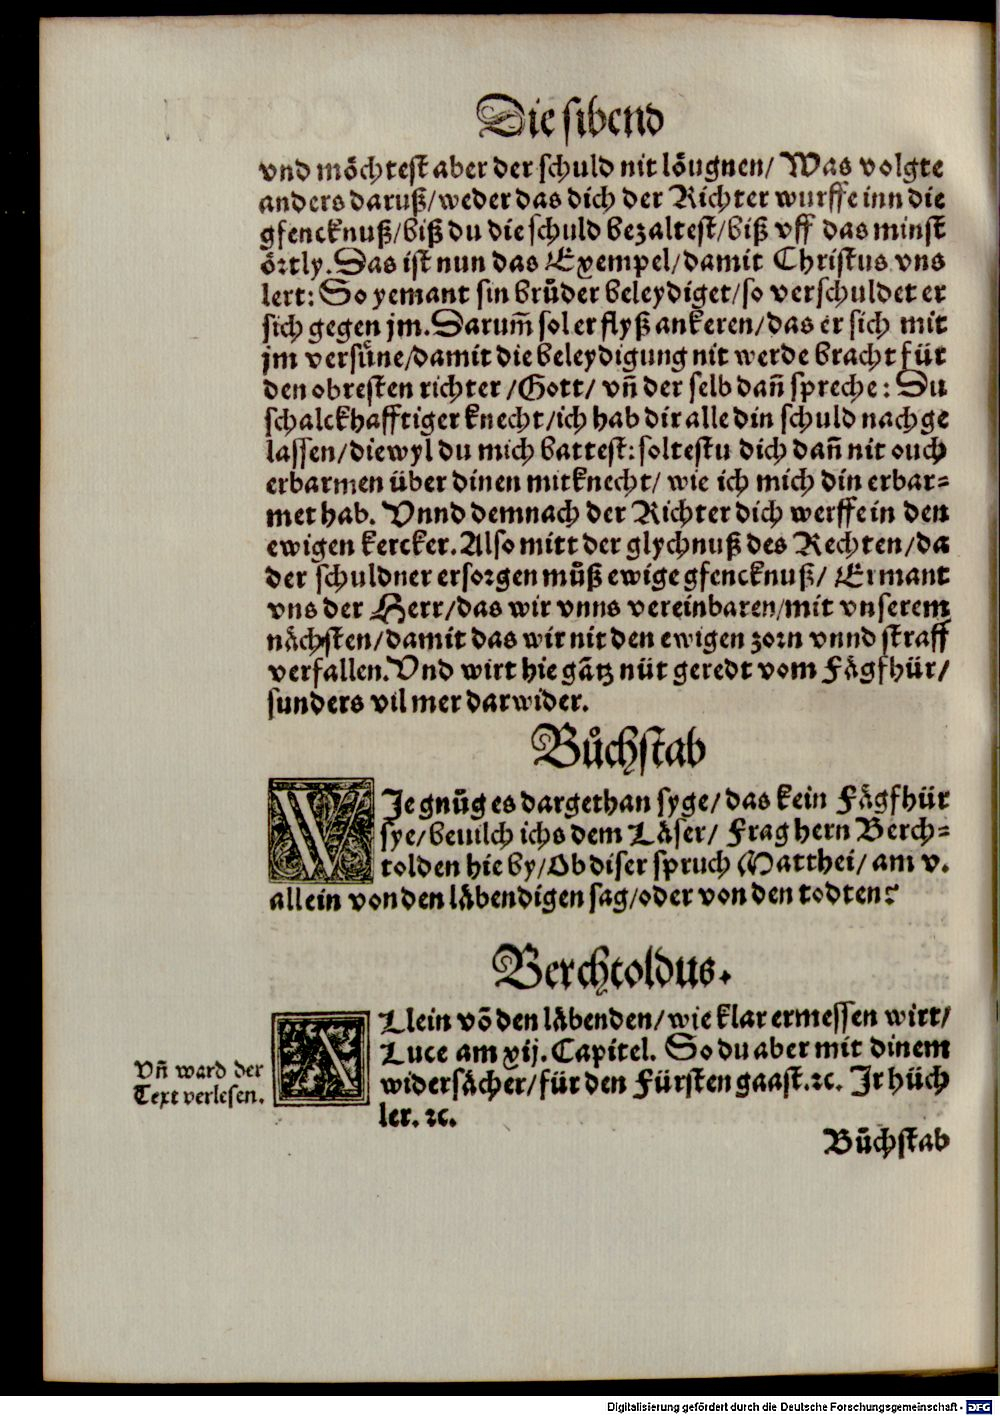 Die sibend
vnd möchtest aber der schuld nit löugnen/ Was volgte
anders daruß/weder das dich der Richter wurffe inn die
gfencknuß/biß du die schuld bezaltest/biß vff das minst
örtly. Das ist nun das Exempel/damit Christus vns
lert: So yemant sin brůder beleydiget/so verschuldet er
sich gegen jm. Darum̄ sol er flyß ankeren/das er sich mit
jm versüne/damit die beleydigung nit werde bracht für
den obresten richter/Gott/ vn̄ der selb dan̄ spreche: Du
schalckhafftiger knecht/ich hab dir alle din schuld nachge
lassen/diewyl du mich battest: soltestu dich dan̄ nit ouch
erbarmen über dinen mitknecht/ wie ich mich din erbar=
met hab. Vnnd demnach der Richter dich werffe in den
ewigen kercker. Also mitt der glychnuß des Rechten/da
der schuldner ersorgen můß ewige gfencknuß/ Ermant
vns der Herr/das wir vnns vereinbaren/mit vnserem
nächsten/damit das wir nit den ewigen zorn vnnd straff
verfallen. Vnd wirt hie gātz nüt geredt vom Fägfhür/
sunders vil mer darwider.
Bůchstab
WJe gnůg es dargethan syge/das kein Fägfhür
sye/beuilch ichs dem Läser/ Frag hern Berch=
tolden hie by/Ob diser spruch Matthei/ am v.
allein von den läbendigen sag/oder von den todten?
Berchtoldus.
ALlein vō den läbenden/wie klar ermessen wirt/
Luce am xij. Capitel. So du aber mit dinem
widersächer/für den Fürsten gaast.ꝛc. Jr hüch
ler. ꝛc.
Vn̄ ward der
Text verlesen.
Bůchstab
Digitalisierung gefördert durch die Deutsche Forschungsgemeinschaft - DFG